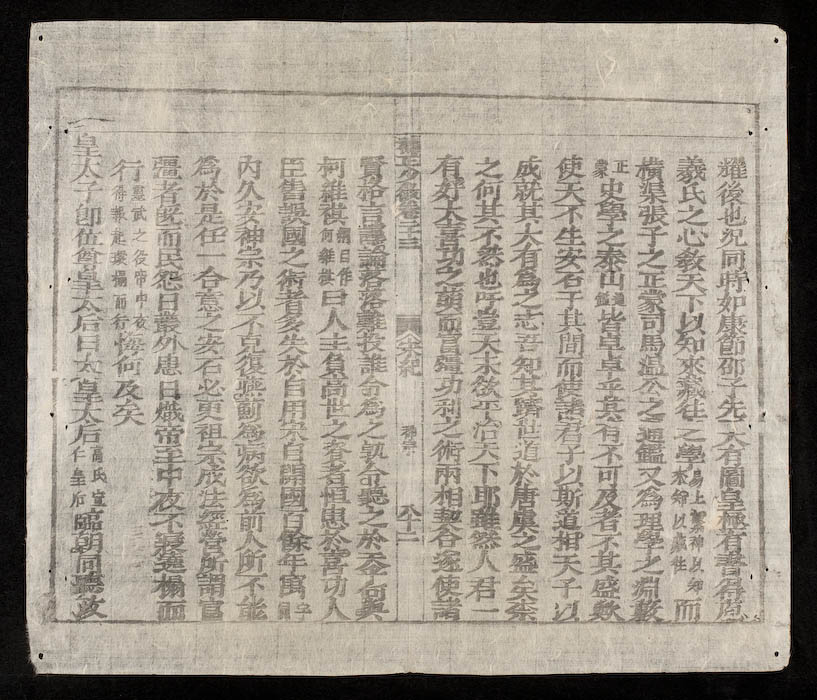 耀後也況同時如康節邵子先天有圖皇極有書得虙
羲氏之心教天下以知來藏往之學易上繫神以知來知以藏往而
橫渠張子之正蒙司馬溫公之通鑑又為理學之淵藪
正蒙史學之泰山通鑑皆卓卓乎其有不可及者不其盛歟
使天不生安石于其間而使諸君子以斯道相天子以
成就其大有為之志吾知其躋世道於唐虞之盛矣柰
之何其不然也吁豈天未欲平治天下耶雖然人君一
有好大喜功之萌而富彊功利之術兩相契合遂使諸
宋紀 神宗 八十二
賢格言讜論落落難投誰令為之孰令聽之於余合與
柯維祺曰人主負高世之畧者恒患於喜功人
臣售誤國之術者多失於自用宋自開國百餘年寓
內久安神宗乃以不克復燕薊為病欲為前人所不能
為於是任一合意之安石必更祖宗成法經營所謂富
彊者旣而民怨日叢外患日熾帝至中夜不寐遶榻而
行靈武之役帝中夜得報起環榻而行悔何及矣
皇太子卽位尊皇太后曰太皇太后高氏宣仁皇后臨朝同聽政